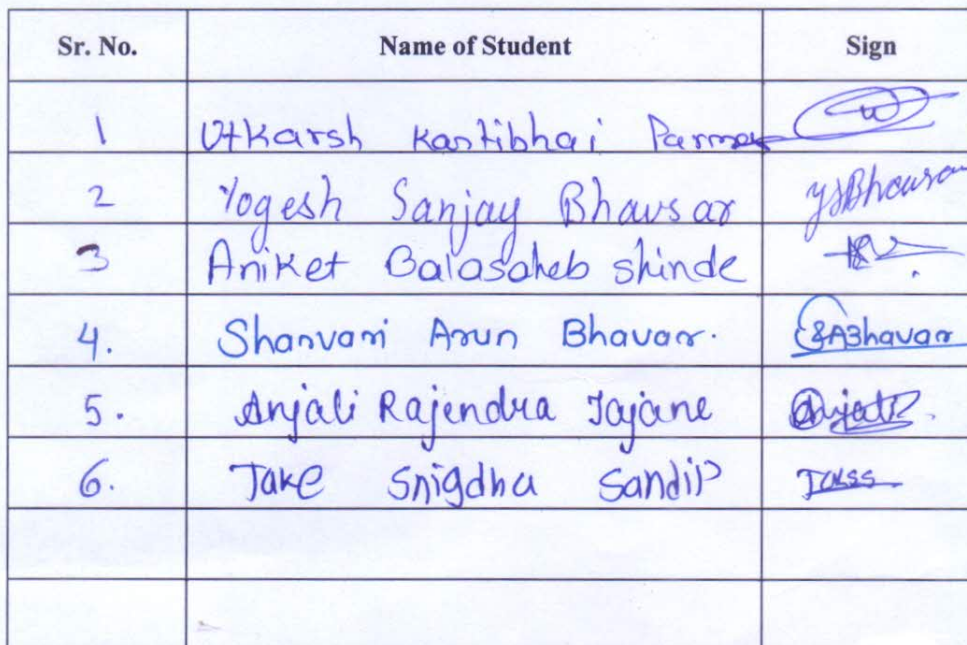 Sr. No. Name of Student Sign
1 Utkarsh Kantibhai Parmar
2 Yogesh Sanjay Bhavsar YSBhavsar
3 Aniket Balasaheb shinde
4. Sharvari Arun Bhavar. SABhavar
5. Anjali Rajendra Tajane Anjali
6. Take Snigdha Sandip TakeSS